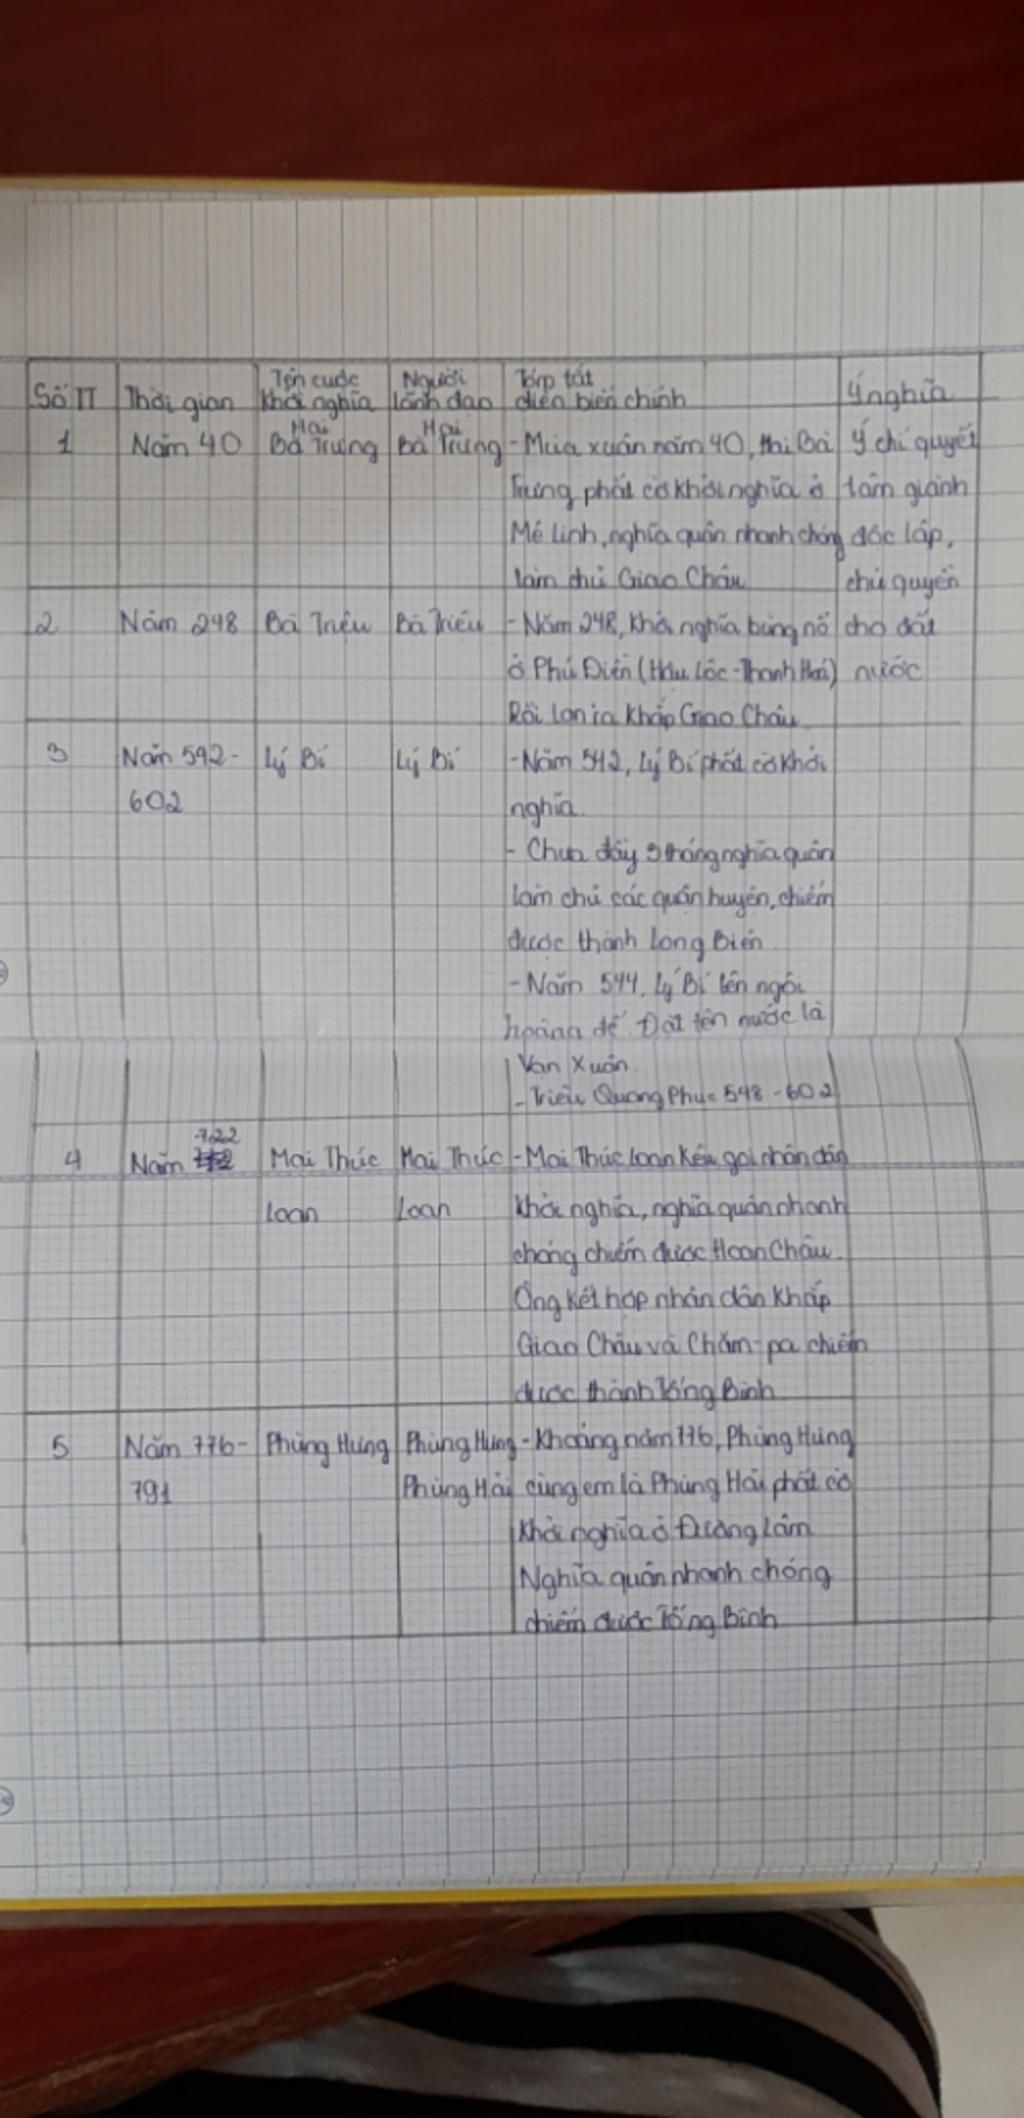 Số TT Thời gian Tên cuộc khởi nghĩa Người lãnh đạo Tóm tắt diễn biến chính Ý nghĩa
1 Năm 40 Hai Bà Trưng Hai Bà Trưng - Mùa xuân năm 40, Hai Bà Ý chí quyết
Trưng phất cờ khởi nghĩa ở tâm giành
Mê Linh, nghĩa quân nhanh chóng độc lập,
làm chủ Giao Châu chủ quyền
2 Năm 248 Bà Triệu Bà Triệu - Năm 248, khởi nghĩa bùng nổ cho đất
ở Phú Điền (Hậu Lộc - Thanh Hoá) nước
Rồi lan ra khắp Giao Châu
3 Năm 592- Lý Bí Lý Bí - Năm 542, Lý Bí phất cờ khởi
602 nghĩa.
- Chưa đầy 3 tháng nghĩa quân
làm chủ các quận huyện, chiếm
được thành Long Biên
- Năm 544, Lý Bí lên ngôi
hoàng đế. Đặt tên nước là
Vạn Xuân.
- Triệu Quang Phục 548 - 602
4 Năm 722 Mai Thúc Mai Thúc - Mai Thúc Loan kêu gọi nhân dân
Loan Loan khởi nghĩa, nghĩa quân nhanh
chóng chiếm được Hoan Châu.
Ông kết hợp nhân dân khắp
Giao Châu và Chăm-pa chiếm
được thành Tống Bình
5 Năm 776- Phùng Hưng Phùng Hưng - Khoảng năm 776, Phùng Hưng
791 Phùng Hải cùng em là Phùng Hải phất cờ
khởi nghĩa ở Đường Lâm
Nghĩa quân nhanh chóng
chiếm được Tống Bình